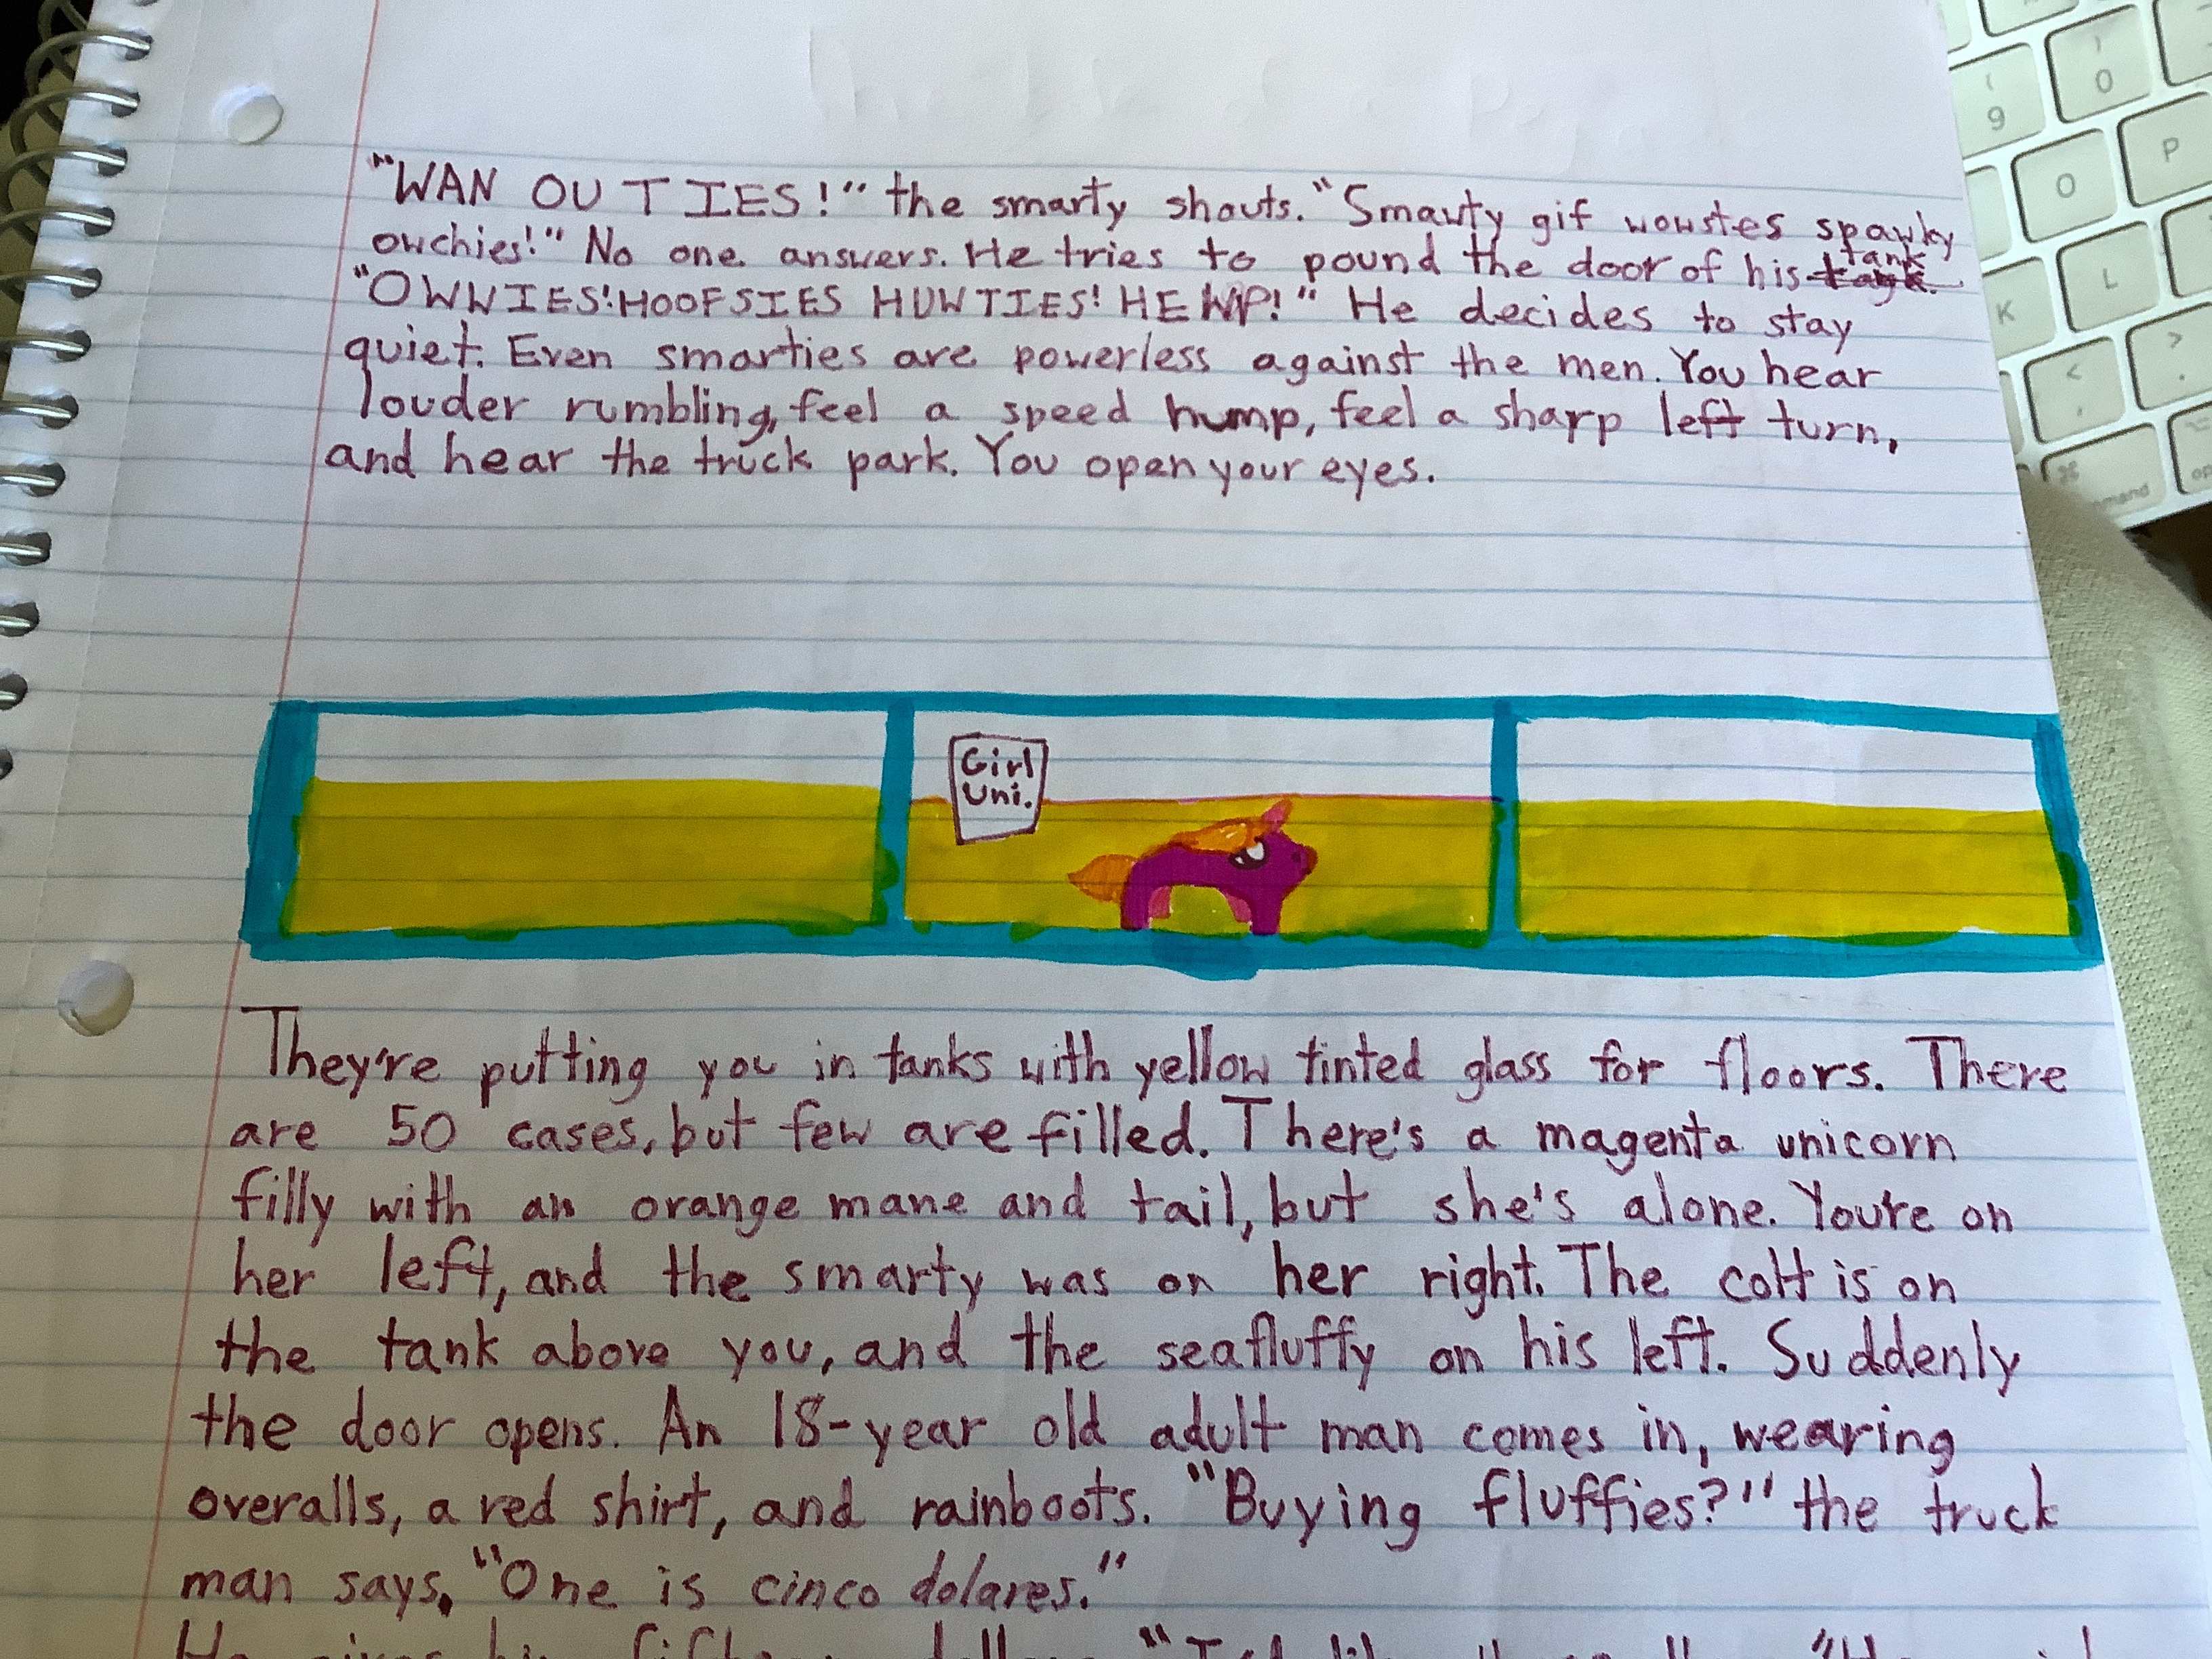 "WAN OUTIES!" the smarty shouts. "Smawty gif wowstes spawky
owchies!" No one answers. He tries to pound the door of his tank
"OWWIES! HOOFSIES HUWTIES! HEWP!" He decides to stay
quiet. Even smarties are powerless against the men. You hear
louder rumbling, feel a speed hump, feel a sharp left turn,
and hear the truck park. You open your eyes.
Girl
Uni.
They're putting you in tanks with yellow tinted glass for floors. There
are 50 cases, but few are filled. There's a magenta unicorn
filly with an orange mane and tail, but she's alone. You're on
her left, and the smarty was on her right. The colt is on
the tank above you, and the seafluffy on his left. Suddenly
the door opens. An 18-year old adult man comes in, wearing
overalls, a red shirt, and rainboots. "Buying fluffies?" the truck
man says. "One is cinco dolares."
9
0
O
P
K
L
<
,
>
.
⌘
mand
op